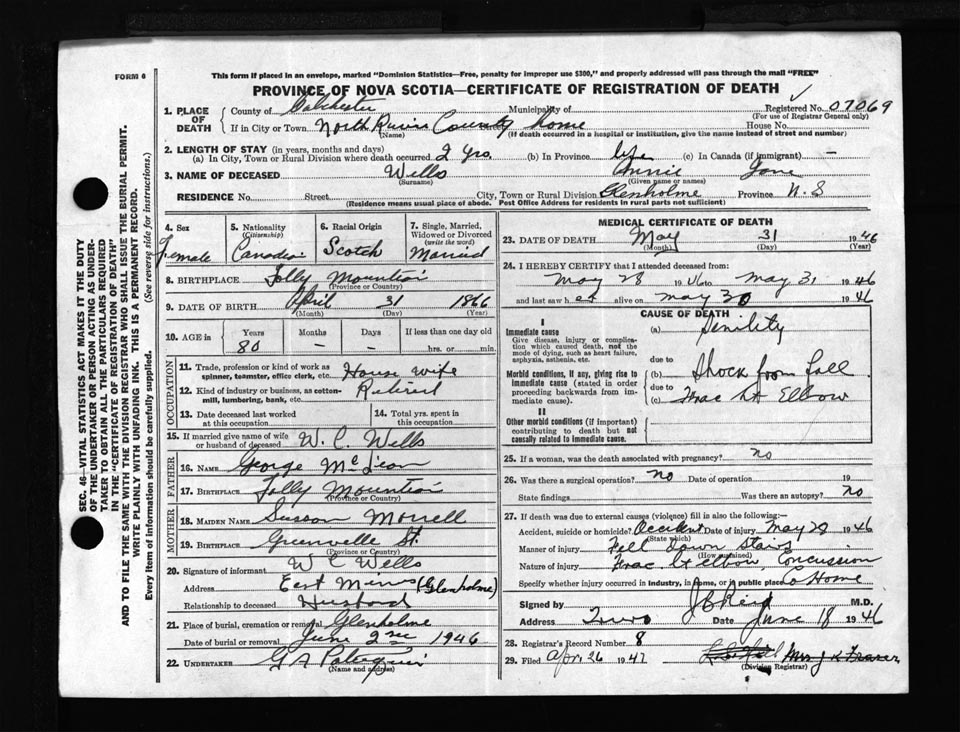 FORM 6
This form if placed in an envelope, marked "Dominion Statistics—Free, penalty for improper use $300," and properly addressed will pass through the mail "FREE"
PROVINCE OF NOVA SCOTIA—CERTIFICATE OF REGISTRATION OF DEATH
1. PLACE OF DEATH County of Colchester Municipality of Registered No. 07069
(For use of Registrar General only)
If in City or Town North River County Home House No.
(Name) (If death occurred in a hospital or institution, give the name instead of street and number)
2. LENGTH OF STAY (in years, months and days)
(a) In City, Town or Rural Division where death occurred 2 Yrs. (b) In Province life (c) In Canada (if immigrant) —
3. NAME OF DECEASED Wells Annie Jane
(Surname) (Given name or names)
RESIDENCE No. Street City, Town or Rural Division Glenholme Province N.S
(Residence means usual place of abode. Post Office Address for residents in rural parts not sufficient)
4. Sex Female
5. Nationality (Citizenship) Canadian
6. Racial Origin Scotch
7. Single, Married, Widowed or Divorced (write the word) Married
8. BIRTHPLACE Folly Mountain
(Province or Country)
9. DATE OF BIRTH April 31 1866
(Month) (Day) (Year)
10. AGE in Years Months Days If less than one day old
80 — — hrs. or min.
OCCUPATION
11. Trade, profession or kind of work as spinner, teamster, office clerk, etc. House wife
12. Kind of industry or business, as cotton-mill, lumbering, bank, etc. Retired
13. Date deceased last worked at this occupation
14. Total yrs. spent in this occupation
15. If married give name of wife or husband of deceased W. C. Wells
FATHER
16. NAME George McLean
17. BIRTHPLACE Folly Mountain
(Province or Country)
MOTHER
18. MAIDEN NAME Susan Morrell
19. BIRTHPLACE Greenville St.
(Province or Country)
20. Signature of informant W C Wells
Address East Mines (Glenholme)
Relationship to deceased Husband
21. Place of burial, cremation or removal Glenholme
Date of burial or removal June 2nd 1946
22. UNDERTAKER G A
(Name and address)
MEDICAL CERTIFICATE OF DEATH
23. DATE OF DEATH May 31 1946
(Month) (Day) (Year)
24. I HEREBY CERTIFY that I attended deceased from:
May 28 1946 to May 31 1946
and last saw her alive on May 30 1946
CAUSE OF DEATH
I
Immediate cause (a) Senility
Give disease, injury or complication which caused death, not the mode of dying, such as heart failure, asphyxia, asthenia, etc.
due to
Morbid conditions, if any, giving rise to immediate cause (stated in order proceeding backwards from immediate cause).
(b) Shock from fall
due to
(c) Frac Lt Elbow
II
Other morbid conditions (if important) contributing to death but not causally related to immediate cause.
25. If a woman, was the death associated with pregnancy? no
26. Was there a surgical operation? no Date of operation 19
State findings Was there an autopsy? no
27. If death was due to external causes (violence) fill in also the following:—
Accident, suicide or homicide? Accident Date of injury May 28 1946
(State which)
Manner of injury Fell Down Stairs
(How sustained)
Nature of injury Frac Lt elbow, Concussion
Specify whether injury occurred in industry, in home, or in public place Co Home
Signed by M.D.
Address Truro Date June 18 1946
28. Registrar's Record Number 8
29. Filed Apr. 26 1947 Mrs J K Fraser
(Division Registrar)
SEC. 46—VITAL STATISTICS ACT MAKES IT THE DUTY
OF THE UNDERTAKER OR PERSON ACTING AS UNDER-
TAKER TO OBTAIN ALL THE PARTICULARS REQUIRED
IN THE "CERTIFICATE OF REGISTRATION OF DEATH"
AND TO FILE THE SAME WITH THE DIVISION REGISTRAR WHO SHALL ISSUE THE BURIAL PERMIT.
WRITE PLAINLY WITH UNFADING INK. THIS IS A PERMANENT RECORD.
Every item of information should be carefully supplied. (See reverse side for instructions.)